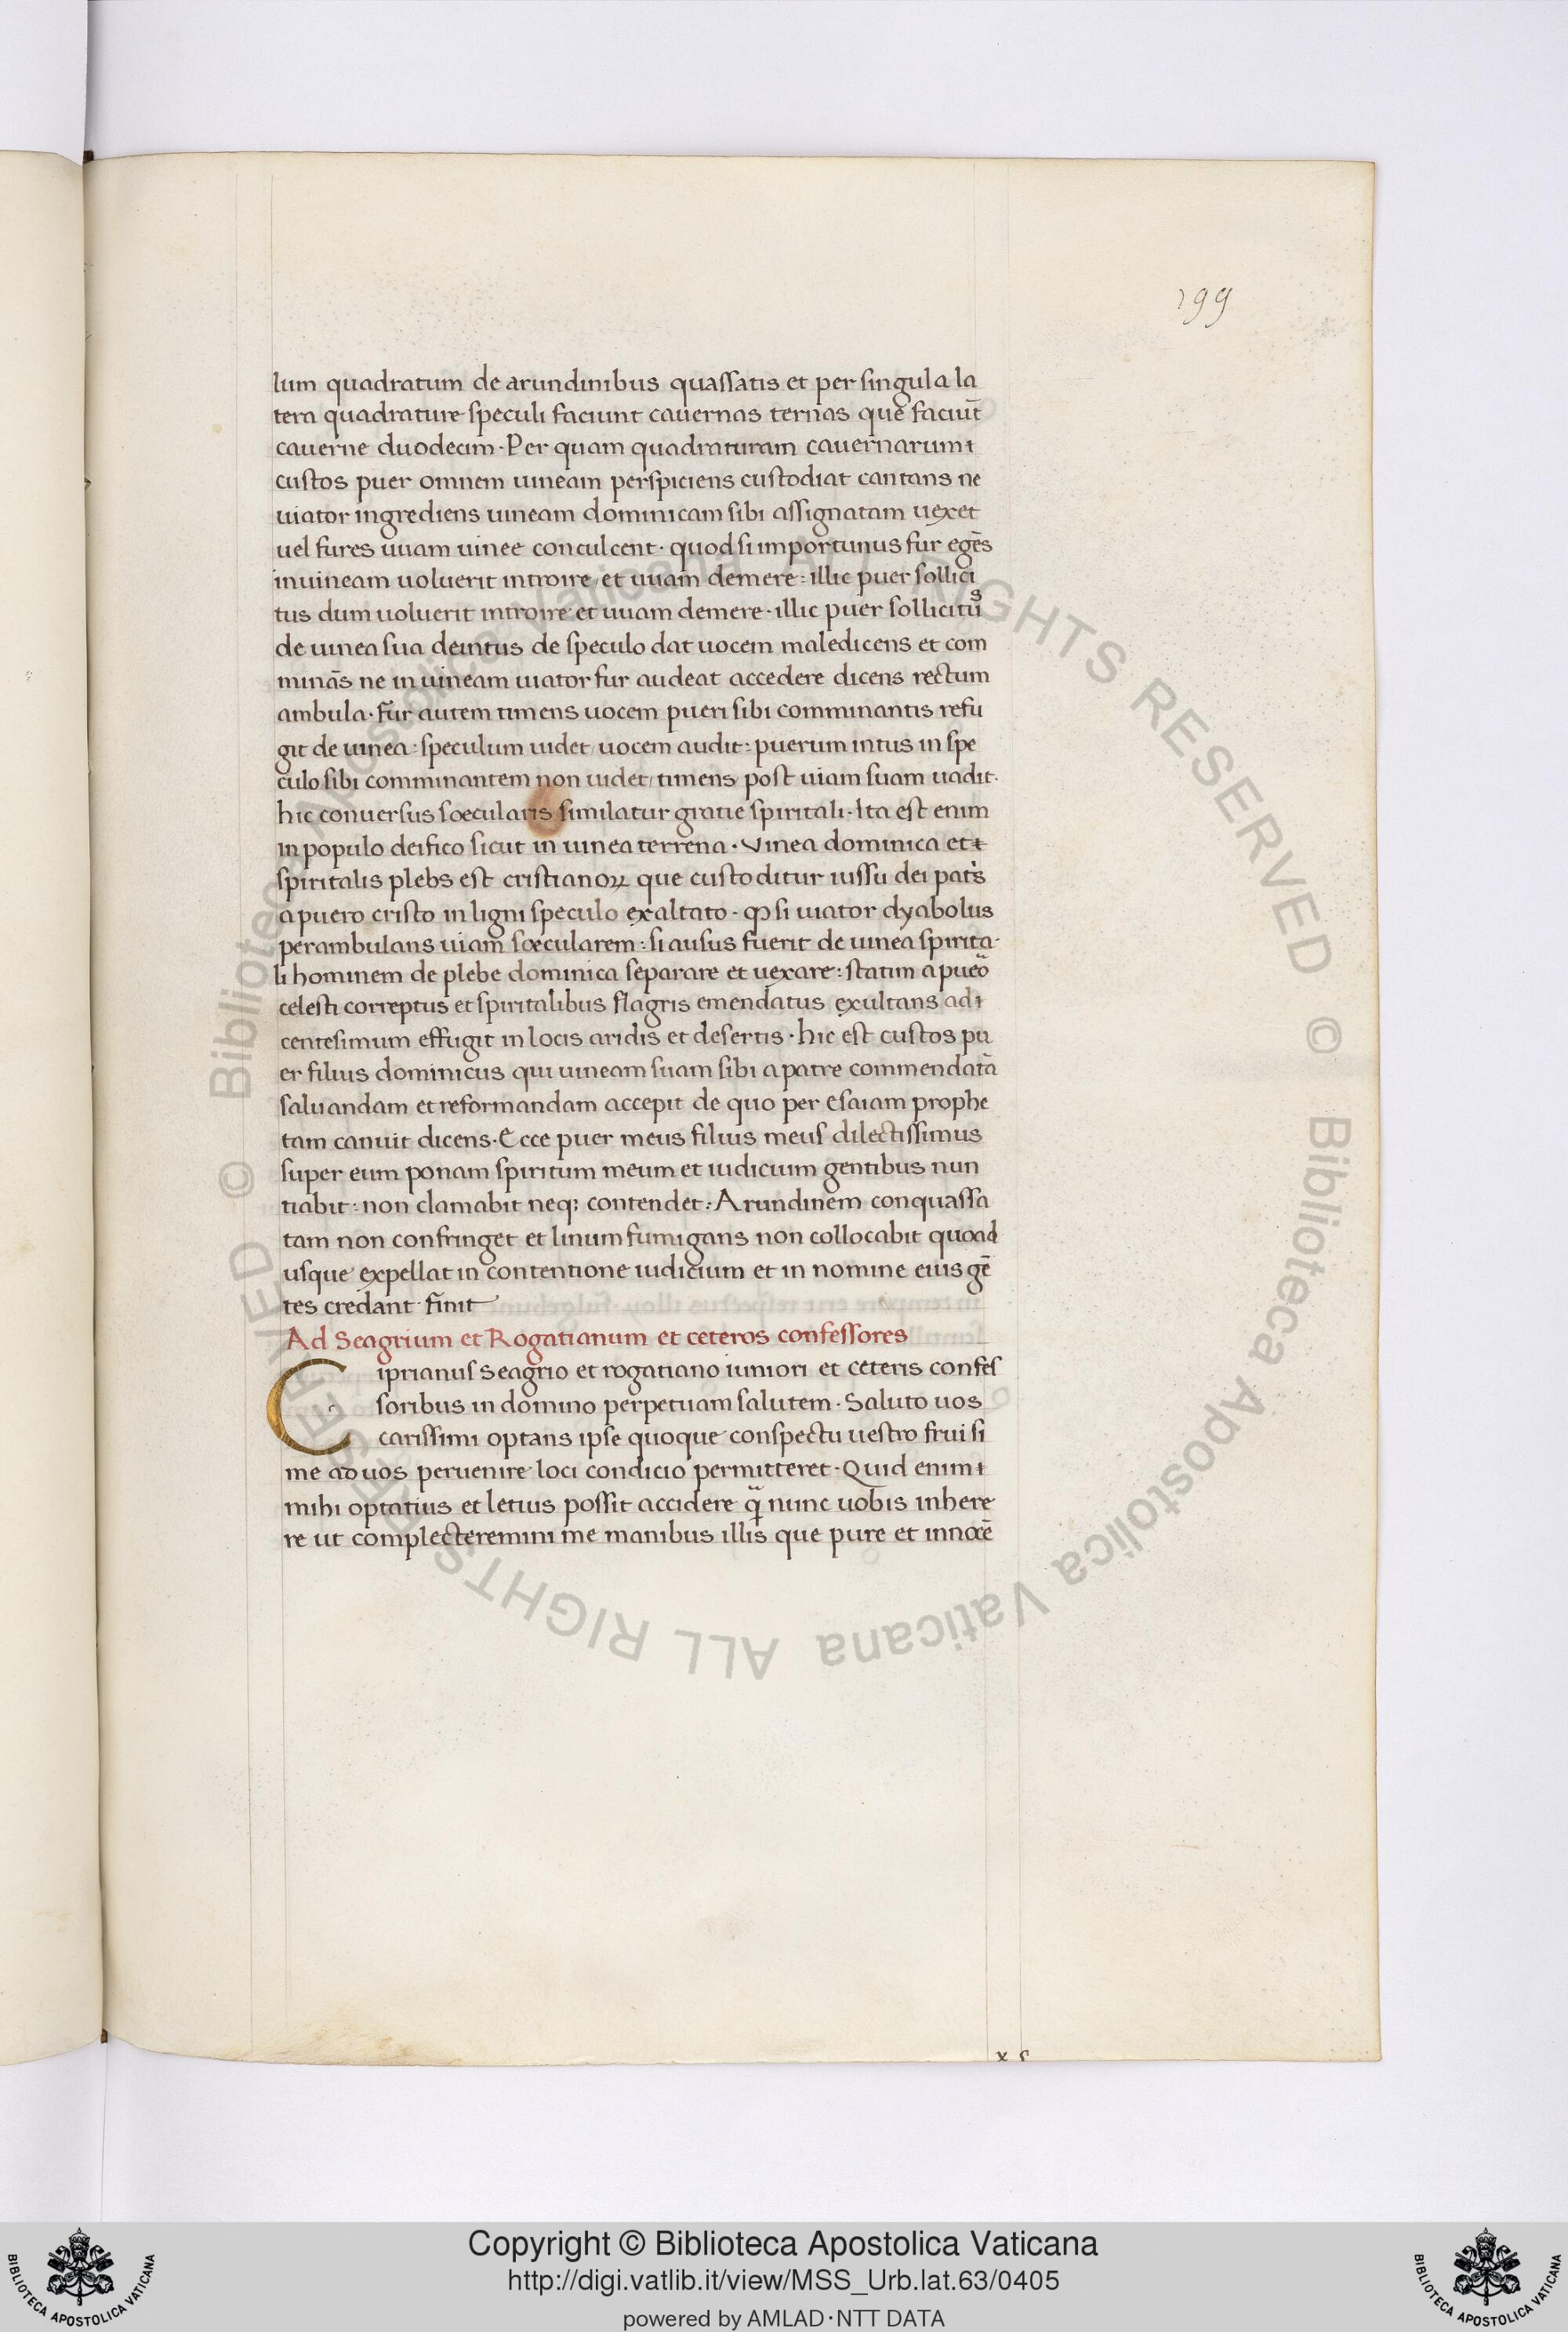 199
lum quadratum de arundinibus quassatis et per singula la
tera quadrature speculi faciunt cauernas ternas que faciūt
cauerne duodecim · Per quam quadraturam cauernarum
custos puer omnem uineam perspiciens custodiat cantans ne
uiator ingrediens uineam dominicam sibi assignatam uexet
uel fures uuam uinee conculcent · quod si importunus fur egēs
in uineam uoluerit introire et uuam demere : illic puer sollici
tus dum uoluerit introire et uuam demere · illic puer sollicitus
de uinea sua deintus de speculo dat uocem maledicens et com
minās ne in uineam uiator fur audeat accedere dicens rectum
ambula · fur autem timens uocem pueri sibi comminantis refu
git de uinea : speculum uidet uocem audit : puerum intus in spe
culo sibi comminantem non uidet / timens post uiam suam uadit ·
hic conuersus sœcularis similatur gratie spiritali · Ita est enim
in populo deifico sicut in uinea terrena · Vinea dominica et
spiritalis plebs est cristianoꝝ que custoditur iussu dei patis
a puero cristo in ligni speculo exaltato · ꝙ si uiator dyabolus
perambulans uiam sœcularem : si ausus fuerit de uinea spirita-
li hominem de plebe dominica separare et uexare : statim a pueo
celesti correptus et spiritalibus flagris emendatus exultans ad
centesimum effugit in locis aridis et desertis · hic est custos pu
er filius dominicus qui uineam suam sibi a patre commendatā
saluandam et reformandam accepit de quo per esaiam prophe
tam canuit dicens · Ecce puer meus filius meus dilectissimus
super eum ponam spiritum meum et iudicium gentibus nun
tiabit : non clamabit neq; contendet : Arundinem conquassa
tam non confringet et linum fumigans non collocabit quoad
usque expellat in contentione iudicium et in nomine eius gē
tes credant · finit
Ad Seagrium et Rogatianum et ceteros confessores
Ciprianus Seagrio et rogatiano iuniori et ceteris confes
soribus in domino perpetuam salutem · Saluto uos
carissimi optans ipse quoque conspectu uestro frui si
me ad uos peruenire loci condicio permitteret · Quid enim
mihi optatius et letius possit accidere q̄ nunc uobis inhere
re ut complecteremini me manibus illis que pure et innocē
© Biblioteca Apostolica Vaticana ALL RIGHTS RESERVED © Biblioteca Apostolica Vaticana ALL RIGHTS RESERVED
Copyright © Biblioteca Apostolica Vaticana
http://digi.vatlib.it/view/MSS_Urb.lat.63/0405
powered by AMLAD·NTT DATA
BIBLIOTECA APOSTOLICA VATICANA
BIBLIOTECA APOSTOLICA VATICANA